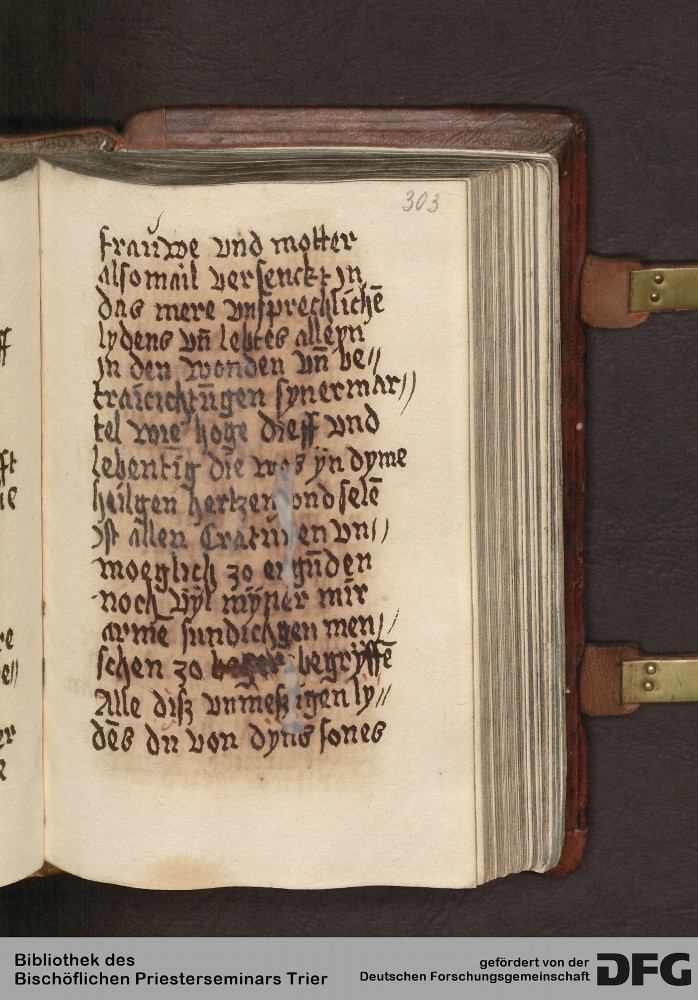 303
frauwe vnd motter
alsomail versenckt jn
das mere vnsprechlichē
lydens vn̄ lebtes alleyn
jn den wonden vn̄ be//
traicichtūgen syner mar//
tel wie hoge dieff vnd
lebentig die was ÿn dyme
heilgen hertzen vnd selē
jst allen Craturen vn//
moeglich zo ergūden
noch vÿl mÿner mir
armē sundichgen men//
schen zo begryffē
Alle disz vnmeszigen ly//
dēs du von dyns sones
Bibliothek des
Bischöflichen Priesterseminars Trier
gefördert von der
Deutschen Forschungsgemeinschaft
DFG